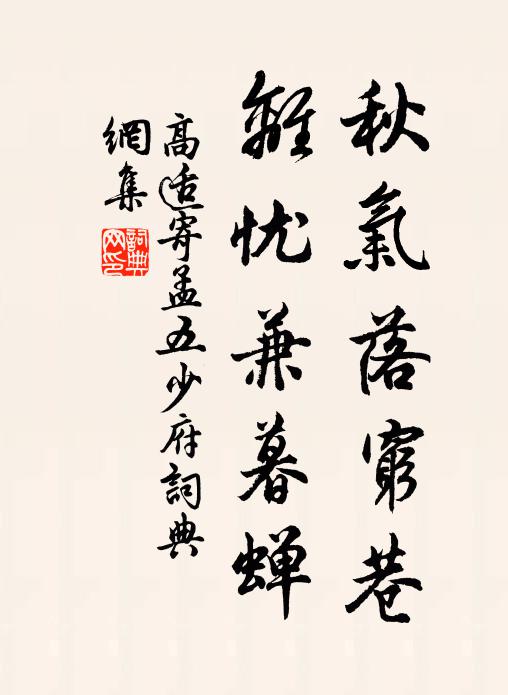 秋氣落窮巷
離忧兼暮蝉
高适寄孟五少府詞典
網集
詞典
网印